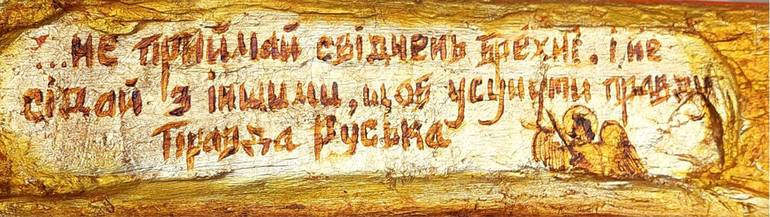 ...не приймай свідчень брехні. і не
сідай з іншими, щоб усунути правду
Правда Руська